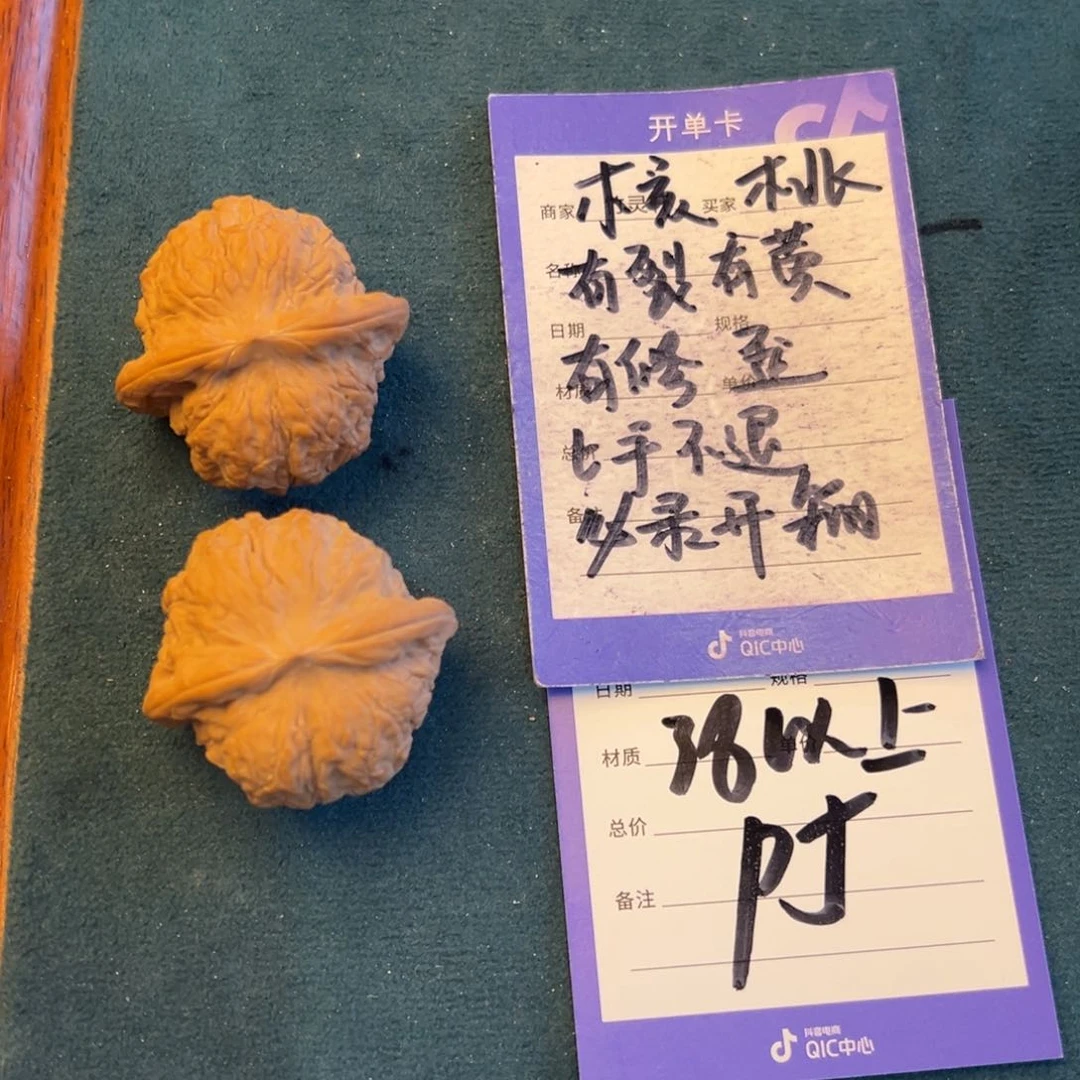 开单卡
商家 灵 买家
核 桃
名称
有裂 有黄
日期 规格
有修 歪
材质 单价
上手不退
总价
必录开箱
备注
抖音电商
QIC中心
日期 规格
38以上
材质 单价
总价
备注
抖音电商
QIC中心